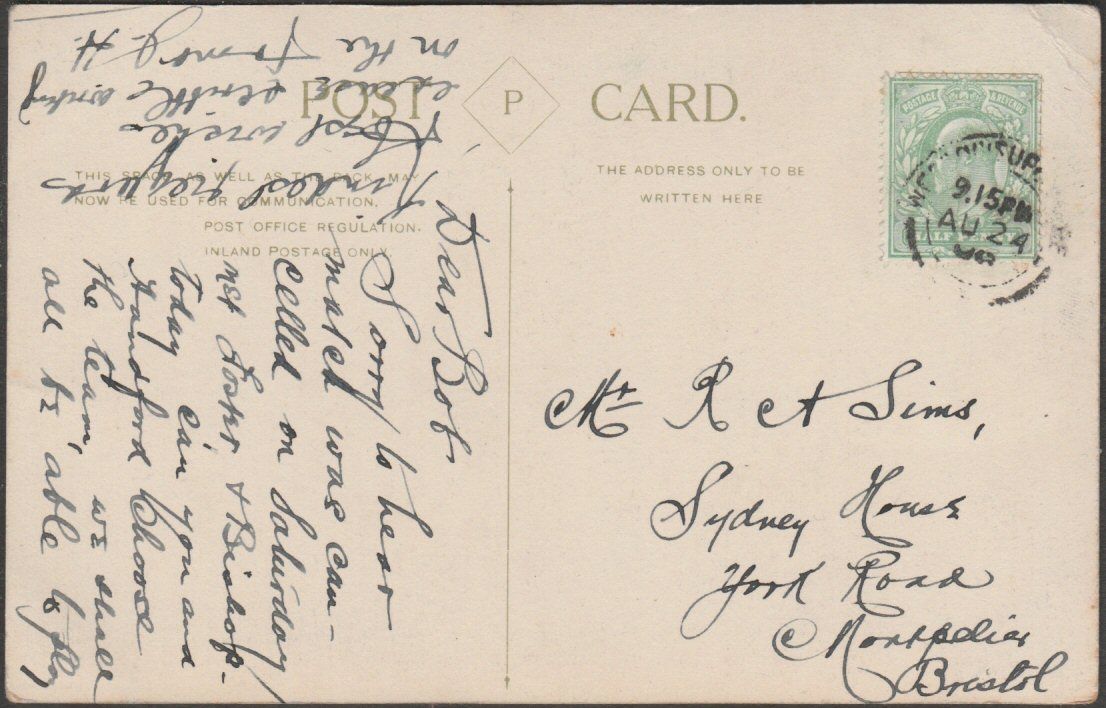 POST P CARD.
THIS SPACE, AS WELL AS THE BACK, MAY
NOW BE USED FOR COMMUNICATION.
POST OFFICE REGULATION.
INLAND POSTAGE ONLY.
THE ADDRESS ONLY TO BE
WRITTEN HERE
POSTAGE & REVENUE
HALF PENNY
9.15PM
AU 24
Dear Bob.
Sorry to hear
match was can-
celled on Saturday
met Foster & Bishop.
Today can you and
Handford Choose
the team, we shall
all be able to play
Kindest regards
Best wishes
excuse
on the
H.
Mr R A Sims,
Sydney House
York Road
Montpelier
Bristol